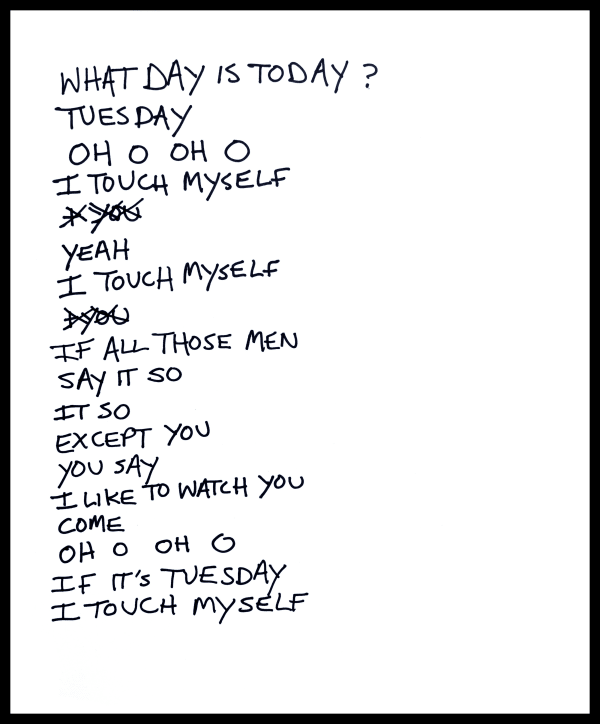 WHAT DAY IS TODAY ?
TUESDAY
OH O OH O
I TOUCH MYSELF
YEAH
I TOUCH MYSELF
IF ALL THOSE MEN
SAY IT SO
IT SO
EXCEPT YOU
YOU SAY
I LIKE TO WATCH YOU
COME
OH O OH O
IF IT'S TUESDAY
I TOUCH MYSELF